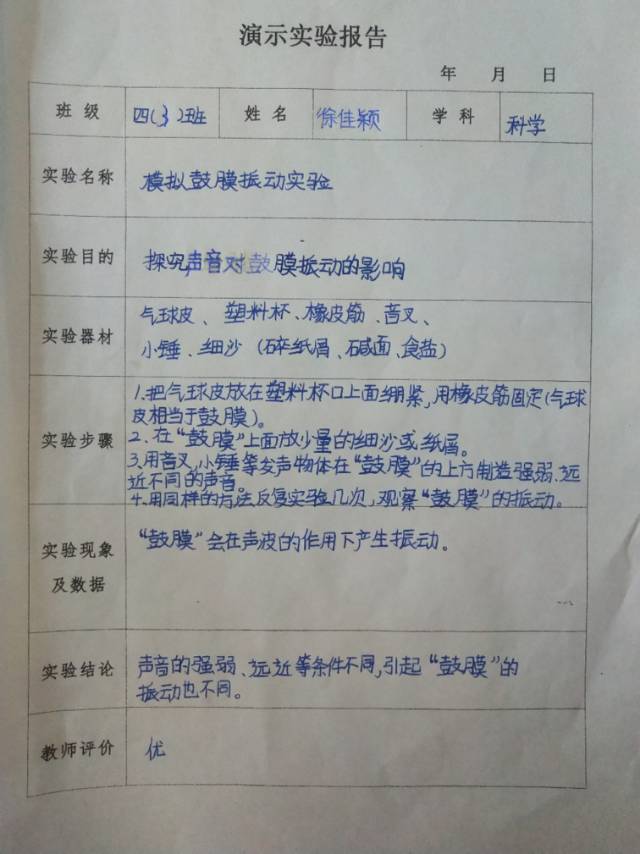 演示实验报告
年 月 日
班级 四(3)班 姓名 徐佳颖 学科 科学
实验名称 模拟鼓膜振动实验
实验目的 探究声音对鼓膜振动的影响
实验器材 气球皮、塑料杯、橡皮筋、音叉、
小锤、细沙(碎纸屑、碱面、食盐)
实验步骤 1.把气球皮放在塑料杯口上面绷紧,用橡皮筋固定(气球
皮相当于鼓膜)。
2.在“鼓膜”上面放少量的细沙或纸屑。
3.用音叉,小锤等发声物体在“鼓膜”的上方制造强弱、远
近不同的声音。
4.用同样的方法反复实验几次,观察“鼓膜”的振动。
实验现象
及数据
“鼓膜”会在声波的作用下产生振动。
实验结论 声音的强弱、远近等条件不同,引起“鼓膜”的
振动也不同。
教师评价 优